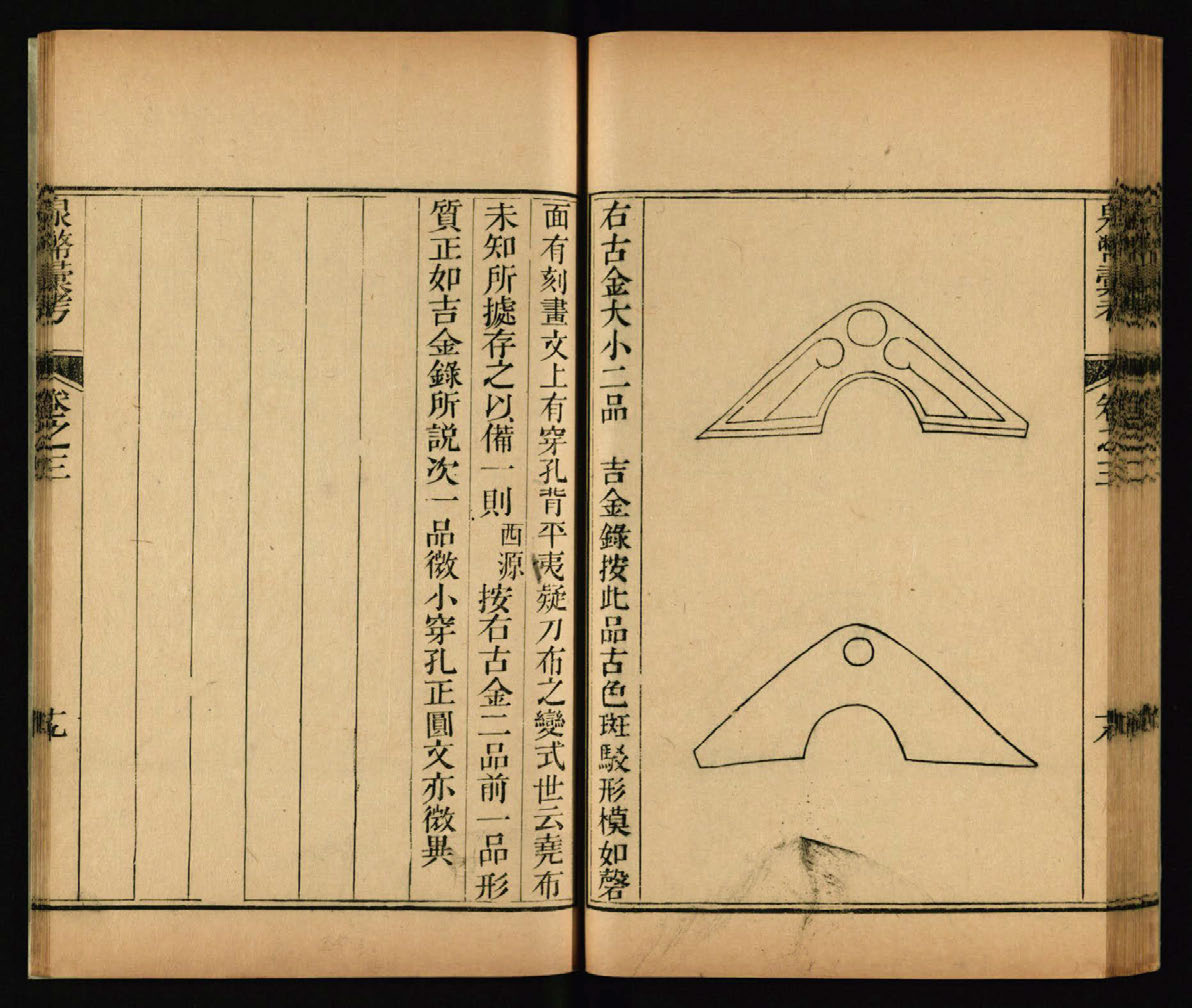 泉幣彙考
卷之三
右古金大小二品　吉金錄按此品古色斑駁形模如磬
面有刻畫文上有穿孔背平夷疑刀布之變式世云堯布
未知所㨿存之以備一則西源按右古金二品前一品形
質正如吉金錄所説次一品微小穿孔正圓文亦微異
泉幣彙考
卷之三